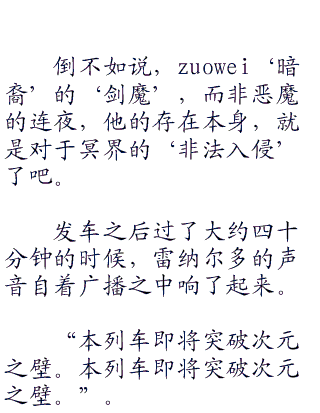 倒不如说，zuowei‘暗
裔’的‘剑魔’，而非恶魔
的连夜，他的存在本身，就
是对于冥界的‘非法入侵’
了吧。
发车之后过了大约四十
分钟的时候，雷纳尔多的声
音自着广播之中响了起来。
“本列车即将突破次元
之壁。本列车即将突破次元
之壁。”。